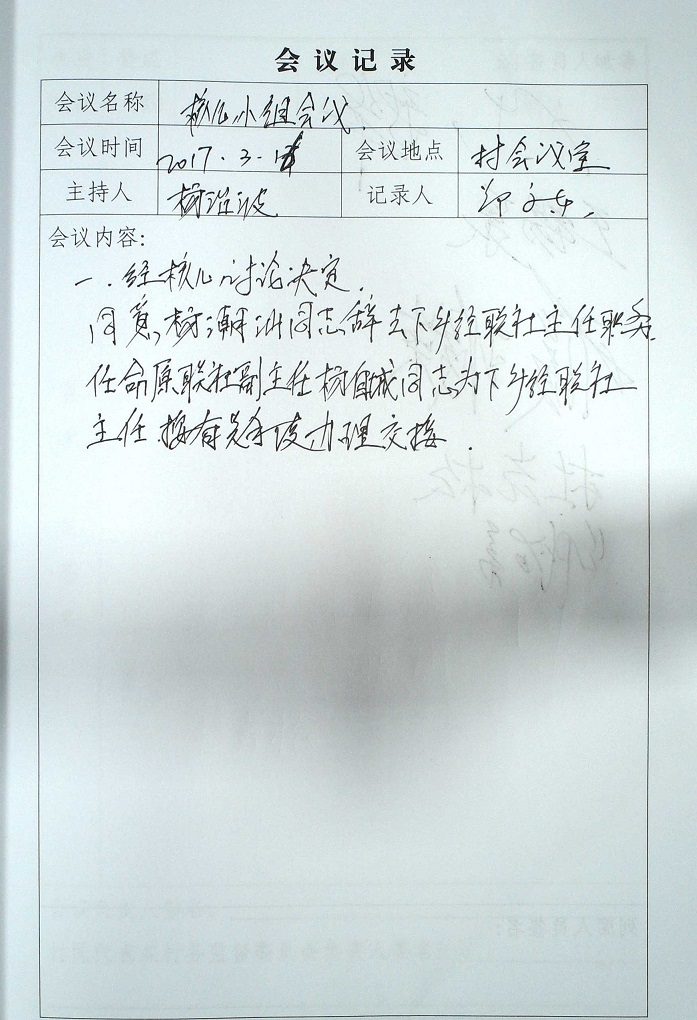 会议记录
会议名称 核心小组会议.
会议时间 2017.3.1 会议地点 村会议室
主持人 记录人
会议内容:
一.经核心讨论决定.
同意,树潮洲同志辞去下乡经联社主任职务.
任命原联社副主任树自城同志为下乡经联社
主任.按有关制度办理交接.